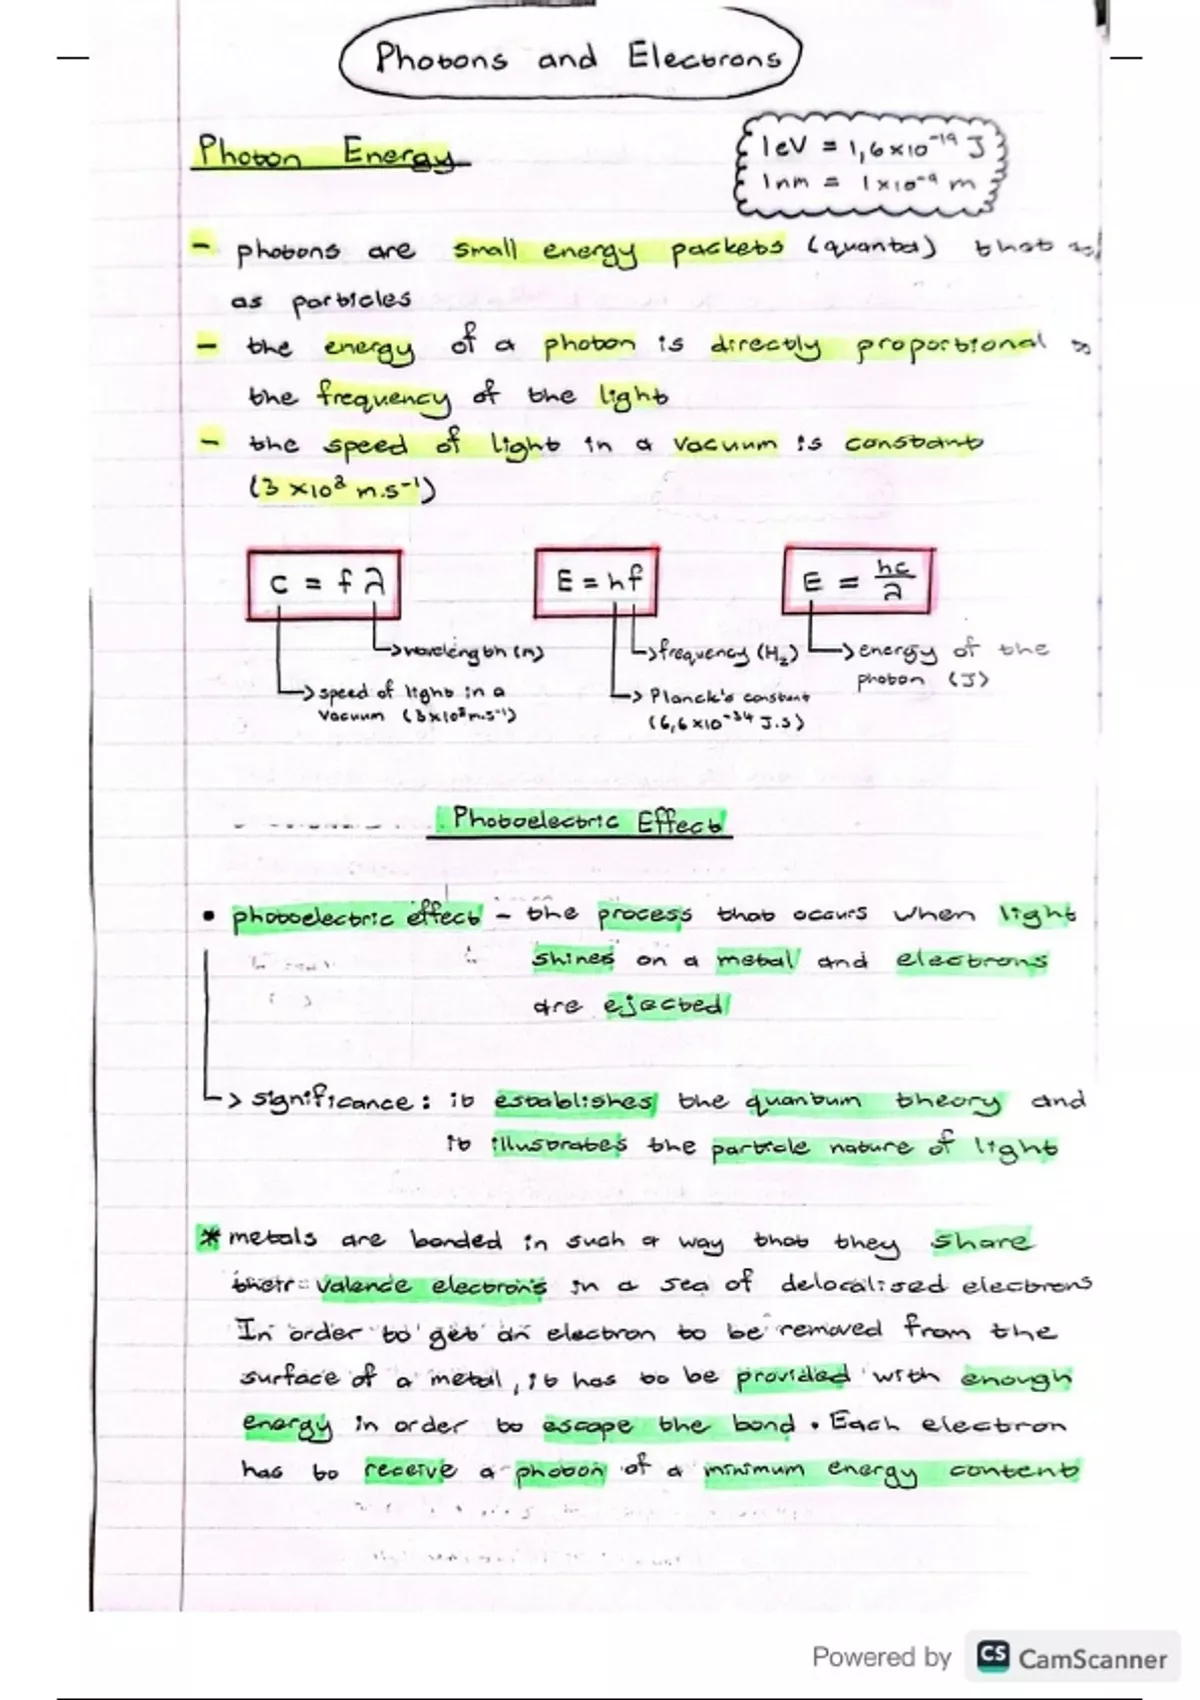 Photons and Electrons
Photon Energy
1eV = 1,6×10⁻¹⁹ J
1nm = 1×10⁻⁹ m
- photons are small energy packets (quanta) that
as particles
- the energy of a photon is directly proportional
the frequency of the light
- the speed of light in a vacuum is constant
(3 ×10⁸ m.s⁻¹)
c = fλ
E = hf
E = hc/λ
→ wavelength (m)
→ frequency (Hz)
→ energy of the
photon (J)
→ speed of light in a
vacuum (3×10⁸m.s⁻¹)
→ Planck's constant
(6,6×10⁻³⁴ J.s)
Photoelectric Effect
• photoelectric effect - the process that occurs when light
shines on a metal and electrons
are ejected
→ significance: it establishes the quantum theory and
it illustrates the particle nature of light
* metals are bonded in such a way that they share
their valence electrons in a sea of delocalised electrons
In order to get an electron to be removed from the
surface of a metal, it has to be provided with enough
energy in order to escape the bond. Each electron
has to receive a photon of a minimum energy content
Powered by CS CamScanner